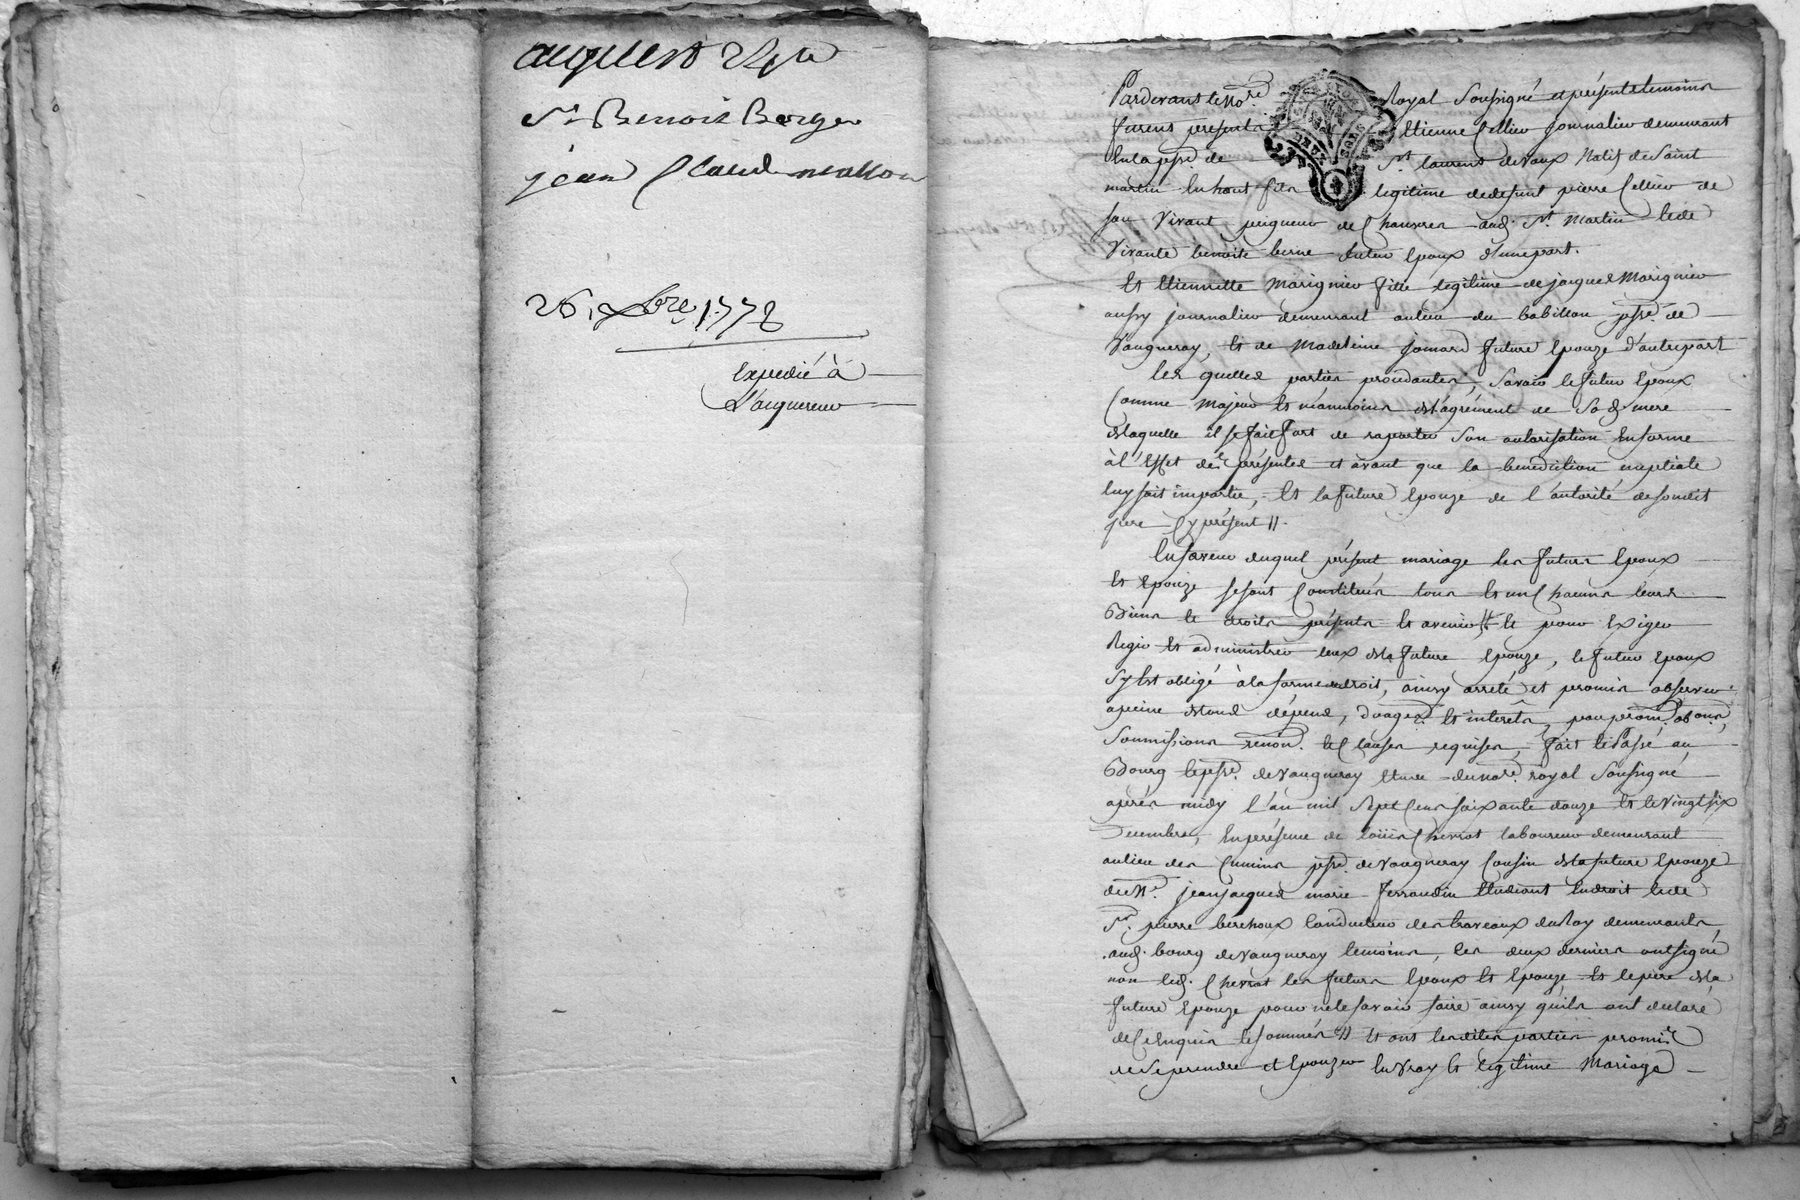 Sr Benoit Berger
jean Claude
26. xbre 1772
Expedié à
L'aquereur
Pardevant le Nore Royal Soussigné et présents temoins
furent presents Etienne Cellier Journalier demeurant
En la psse de St. laurent de vaux Natif de Saint
martin En haut fils legitime de defunt pierre Cellier de
son vivant peigneur de Chanvres aud. St. Martin Et de
Vivante benoite berne futur Epoux d'une part.
Et Etiennette Marignier fille legitime de jacques Marignier
aussy journalier demeurant au lieu du babillon psse. de
Vaugneray, Et de Madeleine jomard future Epouze d'autre part
Les quelles parties procedantes, Savoir le futur Epoux
Comme Majeur Et néanmoins de l'agrément de Sad. mere
de laquelle il se fait fort de raporter Son autorisation En forme
à l'Effet des présentes et avant que la benediction nuptiale
luy soit impartie, Et la future Epouze de l'autorité de sondit
pere Cy présent //.
En faveur duquel présent mariage les futurs Epoux
Et Epouze se sont Constitués tous Et un Chacun leurs
Biens Et droits présents Et avenir // Et pour Exiger
Regir Et administrer Ceux de la future Epouze, le futur Epoux
S'y Est obligé à la forme du droit, ainsy arreté et promis observer
a peine de tous dépens, domages Et interets, par prom. ob.
Soumissions renon. Et Clauses requises, fait Et Passé au
Bourg Et psse. de Vaugneray Etude du nore. royal Soussigné
après midy l'an mil Sept Cent soixante douze Et le Vingt six
Decembre, En présence de Chevrot laboureur demeurant
au lieu des psse. de Vaugneray Cousin de la future Epouze
de Me. jean jacques marie ferrandin Etudiant En droit Et de
Sr. pierre berchoux Conducteur des travaux du Roy demeurants
aud. bourg de Vaugneray temoins, les deux derniers ont signé
non led. Chevrot les futurs Epoux Et Epouze Et le pere de la
future Epouze pour ne le savoir faire ainsy qu'ils ont declaré
de Ce Enquis Et sommés // Et ont lesdites parties promis
de se prendre et Epouzer En Vray Et legitime Mariage